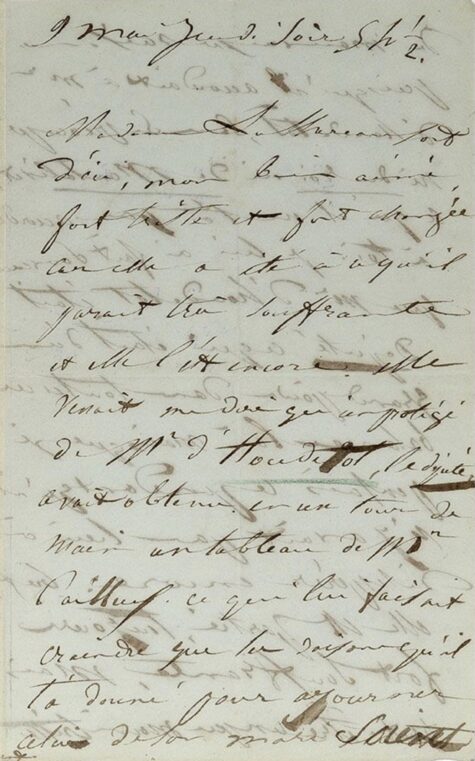 9 mai Jeudi soir 5 h ½.
Madame Luthereau sort
d'ici, mon bien aimé,
fort triste et fort changée
car elle a été à ce qu'il
paraît très souffrante
et elle l'est encore. Elle
venait me dire qu'un protégé
de Mr d'Houdetot, le député,
avait obtenu en un tour de
main un tableau de Mr
Cailleux. ce qui lui faisait
craindre que les raisons qu'il
t'a donné pour ajourner
celui de son mari